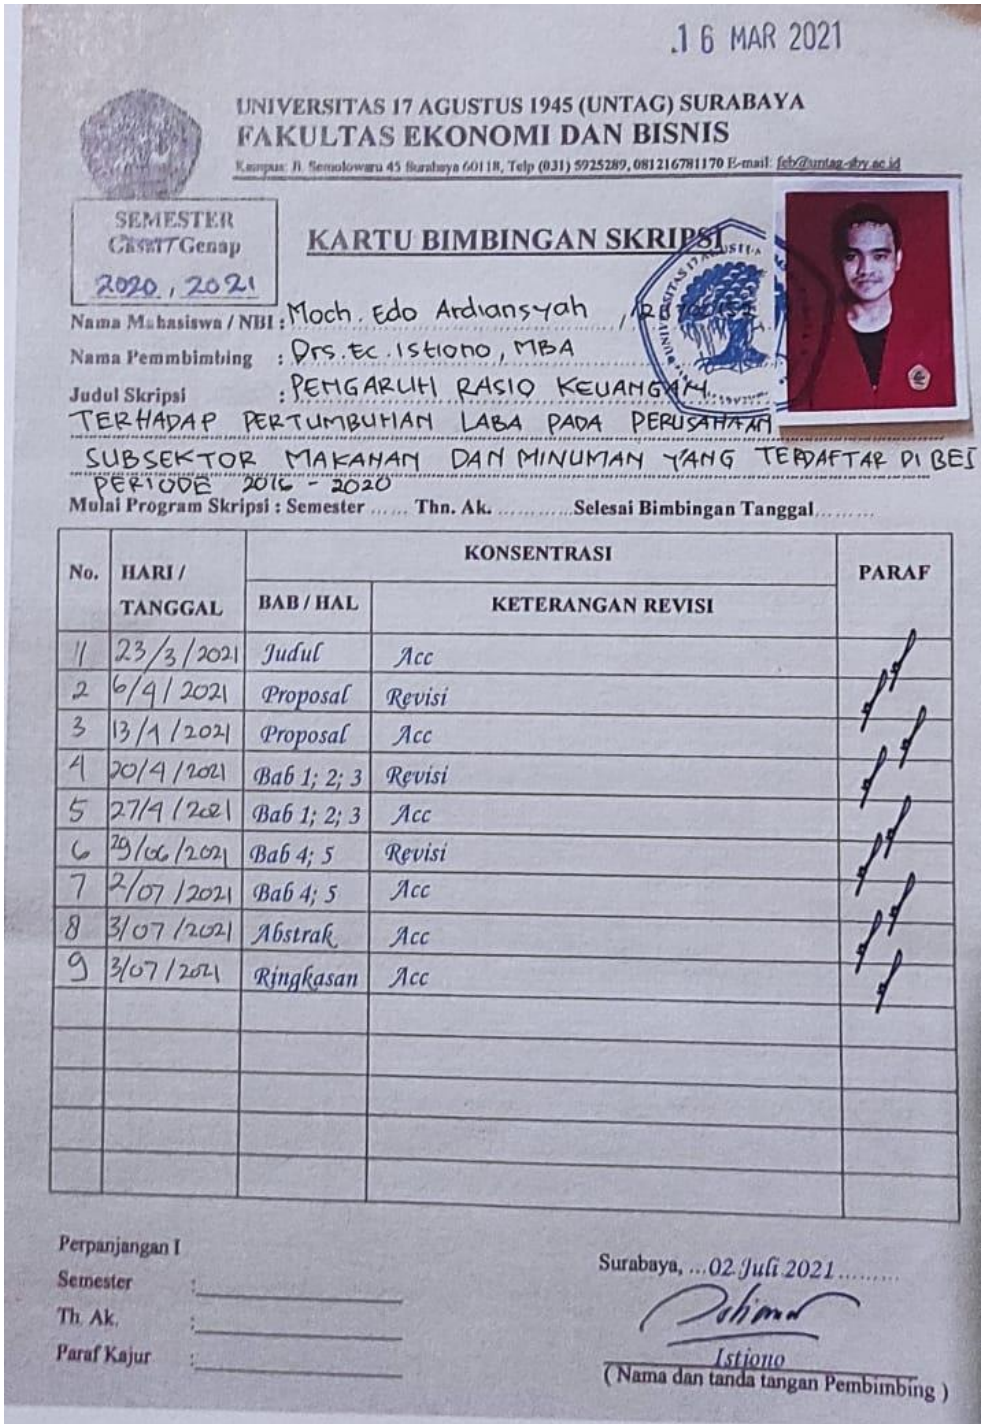 .1 6 MAR 2021
UNIVERSITAS 17 AGUSTUS 1945 (UNTAG) SURABAYA
FAKULTAS EKONOMI DAN BISNIS
Kampus: Jl. Semolowaru 45 Surabaya 60118, Telp (031) 5925289, 081216781170 E-mail: feb@untag-sby.ac.id
SEMESTER
Genap
2020, 2021
KARTU BIMBINGAN SKRIPSI
Nama Mahasiswa / NBI : Moch. Edo Ardiansyah
Nama Pemmbimbing : Drs. Ec. Istiono, MBA
Judul Skripsi : PENGARUH RASIO KEUANGAN
TERHADAP PERTUMBUHAN LABA PADA PERUSAHAAN
SUBSEKTOR MAKANAN DAN MINUMAN YANG TERDAFTAR DI BEI
PERIODE 2016 - 2020
Mulai Program Skripsi : Semester ...... Thn. Ak. ............ Selesai Bimbingan Tanggal.........
No. HARI / TANGGAL KONSENTRASI PARAF
BAB / HAL KETERANGAN REVISI
1 23/3/2021 Judul Acc
2 6/4/2021 Proposal Revisi
3 13/4/2021 Proposal Acc
4 20/4/2021 Bab 1; 2; 3 Revisi
5 27/4/2021 Bab 1; 2; 3 Acc
6 29/06/2021 Bab 4; 5 Revisi
7 2/07/2021 Bab 4; 5 Acc
8 3/07/2021 Abstrak Acc
9 3/07/2021 Ringkasan Acc
Perpanjangan I
Semester :
Th. Ak. :
Paraf Kajur :
Surabaya, ...02 Juli 2021.........
Istiono
( Nama dan tanda tangan Pembimbing )